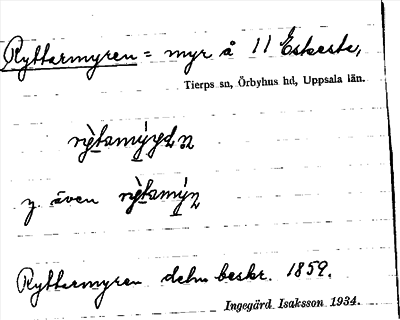 Ryttarmyren = myr å 11 Eskesta,
Tierps sn, Örbyhus hd, Uppsala län.
y. även
Ryttarmyren delm beskr. 1859.
Ingegärd Isaksson 1934.